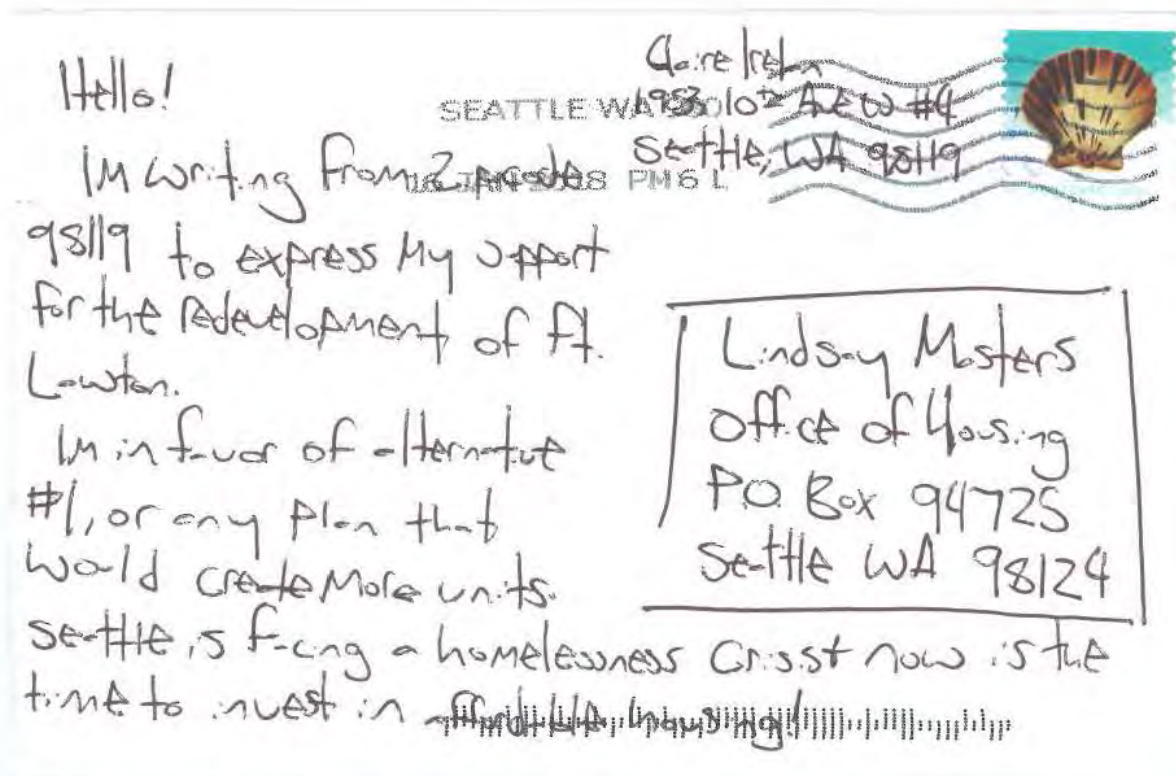 Hello!
Im writing from Zipcode
98119 to express my support
for the redevelopment of Ft.
Lawton.
Im in favor of alternative
#1, or any plan that
would create more units.
Seattle is facing a homelessness crisis + now is the
time to invest in affordable housing!
Claire
10th Ave W #4
Seattle, WA 98119
SEATTLE WA
JAN PM 6 L
Lindsay Masters
Office of Housing
P.O. Box 94725
Seattle WA 98124